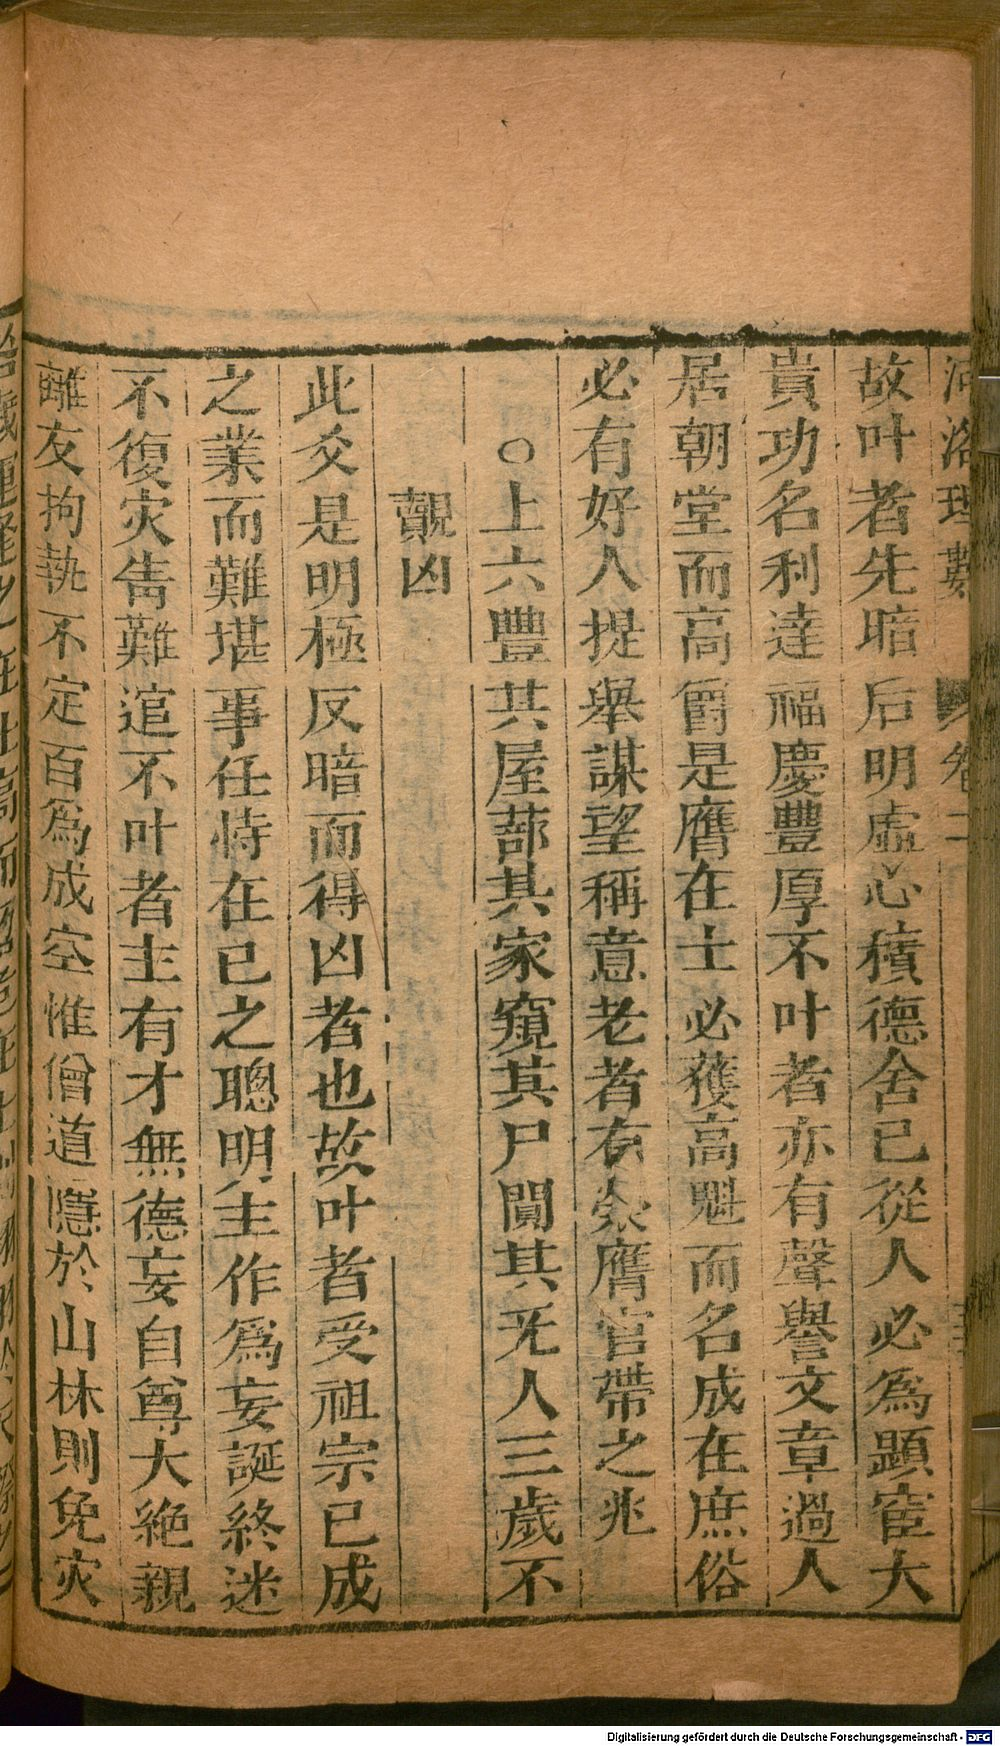 河洛理數 卷二
故叶者先暗后明虛心積德舍已從人必為顯宦大
貴功名利達福慶豐厚不叶者亦有聲譽文章過人
居朝堂而高爵是膺在士必獲高魁而名成在庶俗
必有好人提舉謀望稱意老者有飡膺官帶之兆
○上六豐其屋蔀其家窺其尸闃其旡人三歲不
覿凶
此爻是明極反暗而得凶者也故叶者受祖宗已成
之業而難堪事任恃在已之聰明主作爲妄誕終迷
不復灾眚難逭不叶者主有才無德妄自尊大絶親
離友拘執不定百爲成空惟僧道隱於山林則免灾
Digitalisierung gefördert durch die Deutsche Forschungsgemeinschaft - DFG